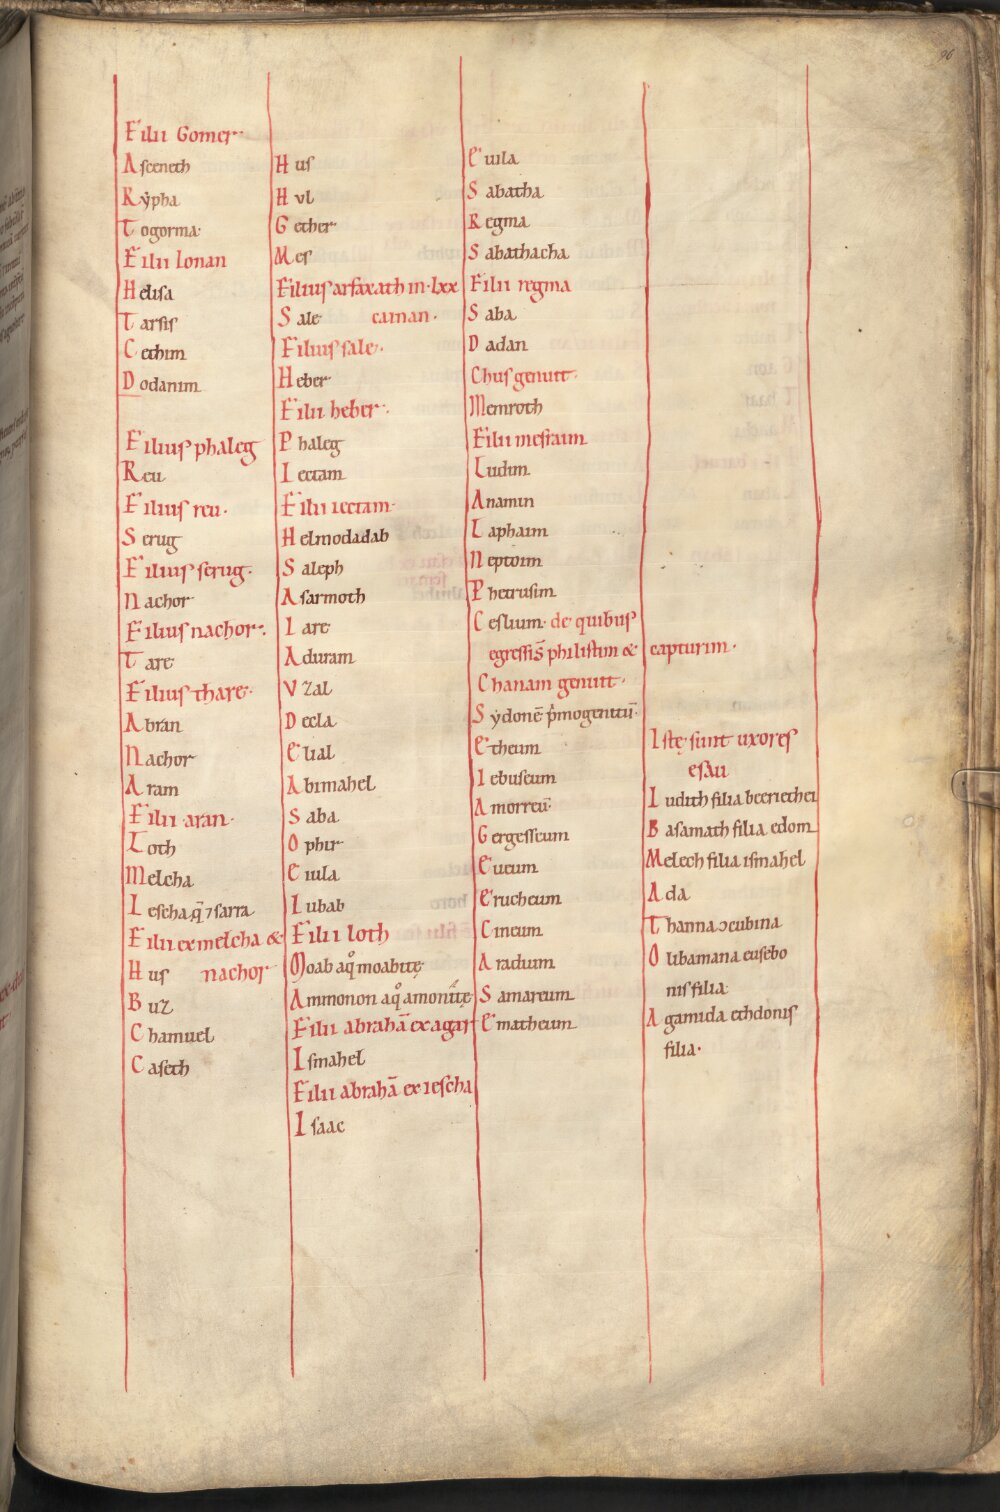 Filii Gomer·
Asceneth
Rẏpha
Togorma·
Filii Ionan
Helisa
Tarsis
Cethim
Dodanim
Filius phaleg
Reu
Filius reu·
Serug
Filius serug·
Nachor
Filius nachor·
Tare
Filius thare·
Abran
Nachor
Aram
Filii aran·
Loth
Melcha
Iescha q̄ ⁊ sarra
Filii ex melcha &
Hus nachor
Buz
Chamuel
Caseth
Hus
Hul
Gether
Mes
Filius arfaxath in·lxx
Sale cainan·
Filius sale·
Heber
Filii heber·
Phaleg
Iectam
Filii iectam·
Helmodadab
Saleph
Asarmoth
Iare
Aduram
Vzal
Decla
Elial
Abimahel
Saba
Ophir
Eiula
Iubab
Filii loth
Moab aqͦ moabitę
Ammonon aqͦ amonitę
Filii abrahā ex agar
Ismahel
Filii abrahā ex iescha
Isaac
Euila
Sabatha
Regma
Sabathacha
Filii regma
Saba
Dadan
Chus genuit·
Memroth
Filii mesraim
Ludim
Anamin
Laphaim
Neptoim
Phetrusim
Ceslium· de quibus
egressiꝰ philistim & capturim·
Chanam genuit·
Sẏdonē p̄mogenitū·
Etheum
Iebuseum
Amorreū·
Gergesseum
Eueum
Erucheum
Cineum
Aradium
Samareum
Ematheum
Istę sunt uxores
esau
Iudith filia beeriethei
Basamath filia edom
Melech filia ismahel
Ada
Thanna ɔcubina
Olibamana eusebo
nis filia
Agamida ethdonis
filia·